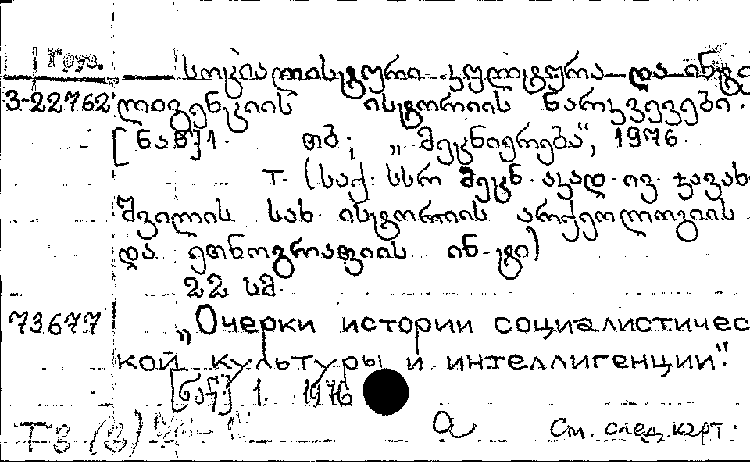 Груз.
სოციალისტური კულტურა და ინტე
З-22762 ლიგენციის ისტორიის ნარკვევები.
[ნაწ] 1. თბ., „მეცნიერება“, 1976.
т. (საქ. სსრ მეცნ. აკად. ივ. ჯავახ
შვილის სახ. ისტორიის არქეოლოგიის
და ეთნოგრაფიის ინ-ტი)
22 სმ.
73677 „Очерки истории социалистичес
кой культуры и интеллигенции".
[ნაწ] 1 1976
ТЗ (3) а См. след. карт.